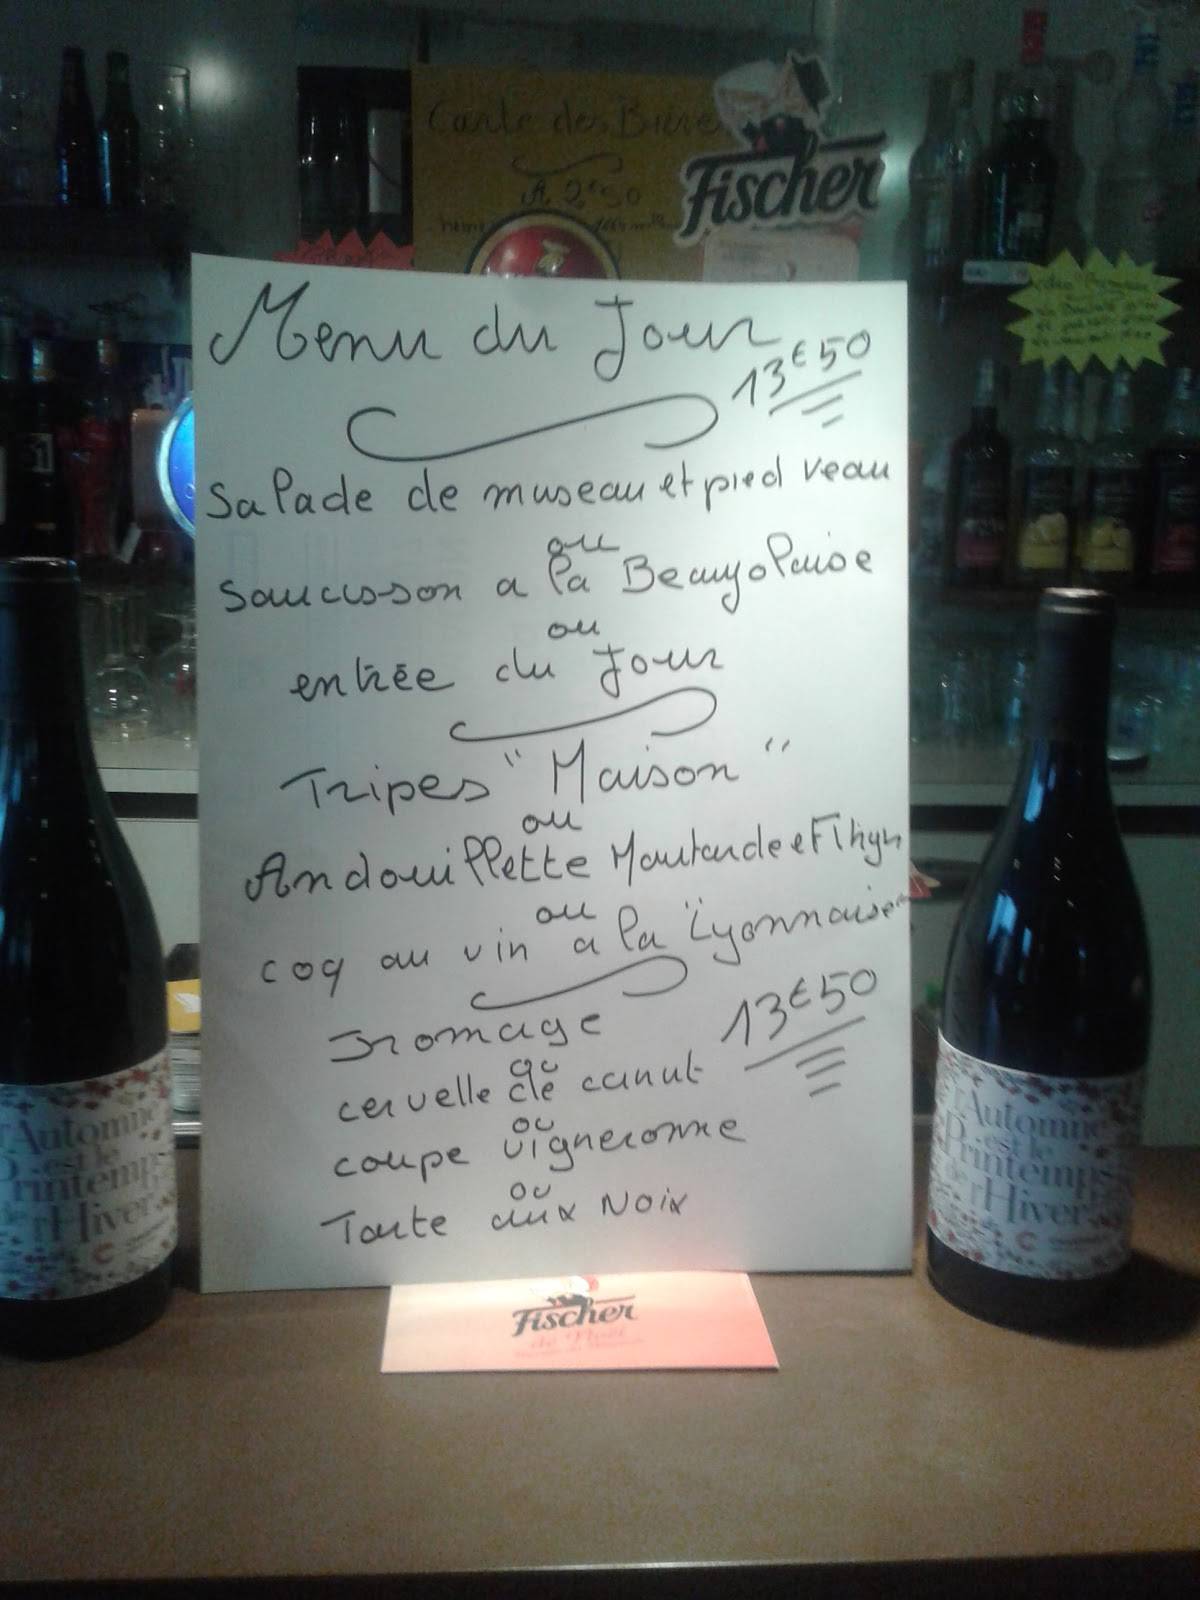 Carte des Bière
A 2€50
Fischer
Menu du Jour
13€50
Salade de museau et pied veau
ou
Saucisson a la Beaujolaise
ou
entrée du Jour
Tripes "Maison"
ou
Andouillette Moutarde et Thym
ou
coq au vin a la "Lyonnaise"
13€50
Fromage
ou
cervelle de canut
ou
coupe vigneronne
ou
Tarte aux Noix
l'Automne
est le
Printemps
de l'Hiver
l'Automne
est le
Printemps
de l'Hiver
Fischer
de Noël